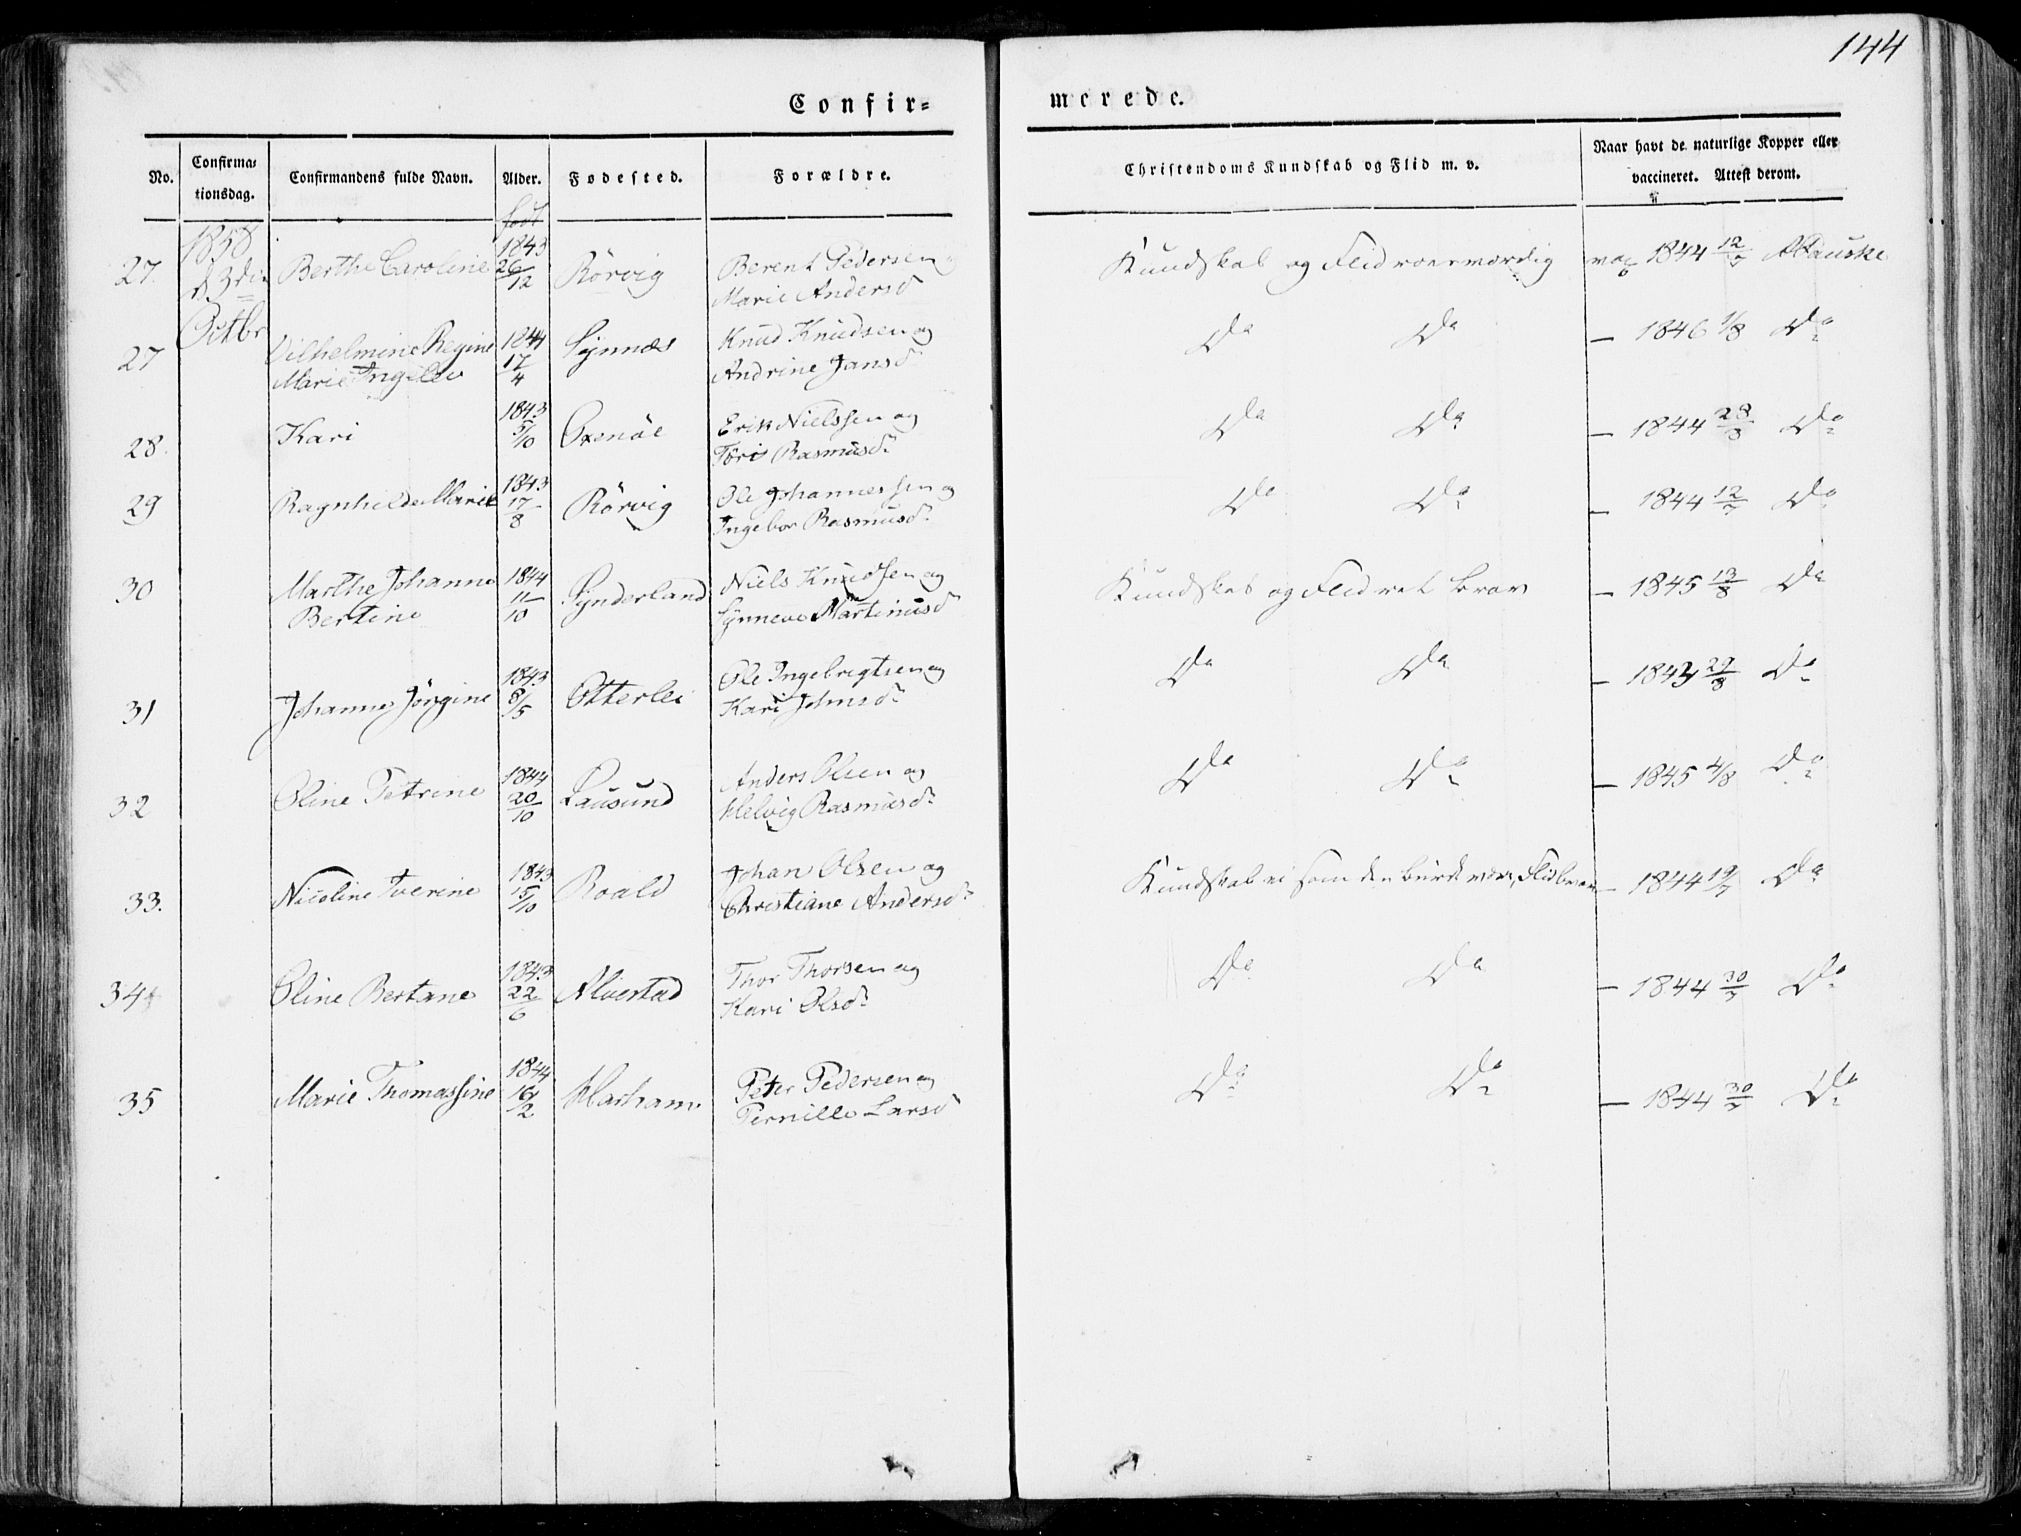 144
Confir=
merede.
No.
Confirma-
tionsdag.
Confirmandens fulde Navn.
Alder.
Fødested.
Forældre.
Christendoms Kundskab og Flid m. v.
Naar havt de naturlige Kopper eller
vaccineret. Attest derom.
født
1858
d 3die
Octbr
27. Berthe Caroline 1843 26/12 Rörvig Berent Pedersen
Marie Andersd
Kundskab og Flid roesværdig vac 1844 12/7
27 Vilhelmine Regine 1844 17/4 Synnæs Knud Knudsen og
Marie Andrine Jansd
Do Do — 1846 1/8 Do
28. Kari 1843 5/10 Oxnöe Erik Nielssen og
Rasmusdr
Do Do — 1844 28/3 Do
29 Ragnhilde Marie 1843 17/8 Rörvig Ole Johannessen og
Ingebor Rasmusdr
Do Do — 1844 12/7 Do
30 Marthe Johanne 1844 11/10 Synderland Niels Knudsen og
Bertine Synneve Martinusd
Kundskab og Flid ret brav — 1845 13/8 Do
31 Johanne Jörgine 1843 8/5 Otterlei Ole Ingebrigtsen og
Kari Johnsdr
Do Do — 29/8 Do
32 Oline Petrine 1844 20/10 Lausund Anders Olsen og
Helvig Rasmusdr
Do Do — 1845 4/8 Do
33. Nicoline Iverine 1843 15/10 Roald Johan Olsen og
Christiane Andersdr
Kundskab ei som den burde være, Flid brav — 1844 19/7 Do
34 Oline Bertane 1843 22/6 Alvestad Thor Thorsen og
Kari Olsdr
Do Do — 1844 30/7 Do
35 Marie Thomassine 1844 16/2 Harham. Peter Pedersen og
Pernille Larsd
Do Do — 1844 30/7 Do